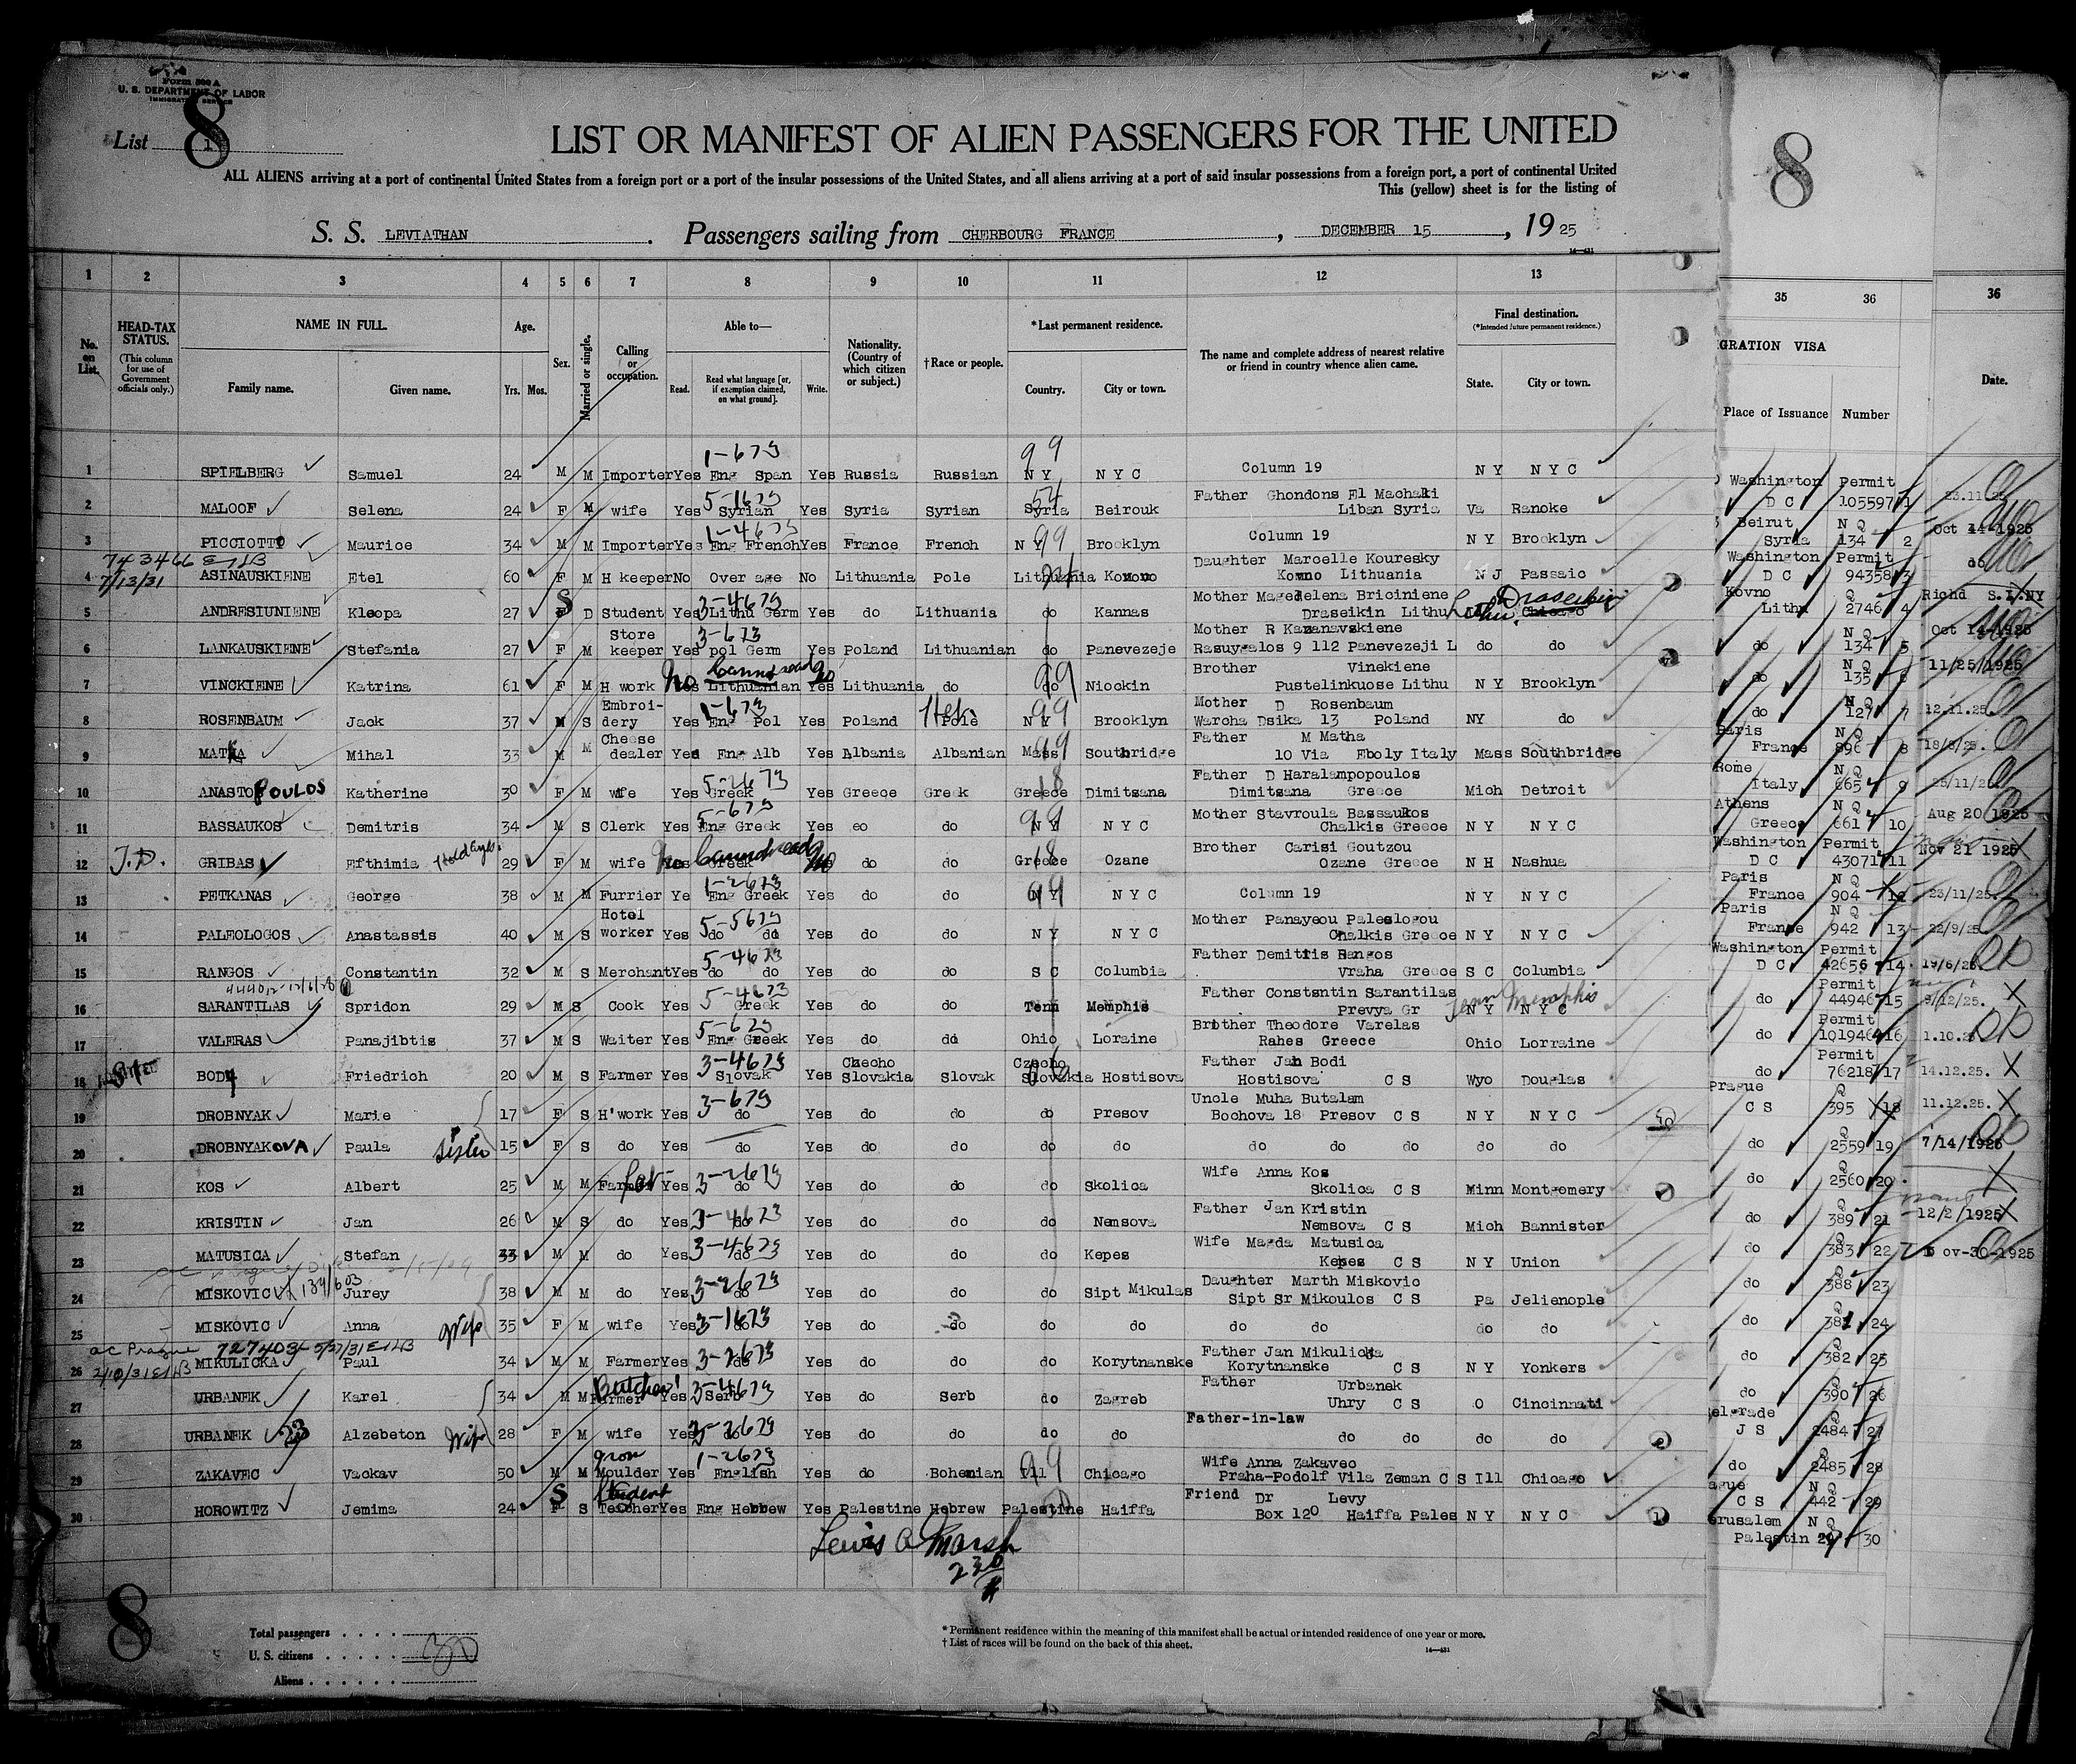 Form 500 A
U. S. DEPARTMENT OF LABOR
IMMIGRATION SERVICE
List 8
8
LIST OR MANIFEST OF ALIEN PASSENGERS FOR THE UNITED
ALL ALIENS arriving at a port of continental United States from a foreign port or a port of the insular possessions of the United States, and all aliens arriving at a port of said insular possessions from a foreign port, a port of continental United
This (yellow) sheet is for the listing of
S. S. LEVIATHAN . Passengers sailing from CHERBOURG FRANCE , DECEMBER 15 , 19 25
1 2 3 4 5 6 7 8 9 10 11 12 13 35 36 36
No. on List.
HEAD-TAX STATUS.
(This column for use of Government officials only.)
NAME IN FULL.
Family name. Given name.
Age.
Yrs. Mos.
Sex.
Married or single.
Calling or occupation.
Able to—
Read. Read what language [or, if exemption claimed, on what ground]. Write.
Nationality. (Country of which citizen or subject.)
†Race or people.
*Last permanent residence.
Country. City or town.
The name and complete address of nearest relative or friend in country whence alien came.
Final destination.
(*Intended future permanent residence.)
State. City or town.
GRATION VISA
Place of Issuance Number
Date.
1 SPIELBERG Samuel 24 M M Importer Yes Eng Span Yes Russia Russian N Y N Y C Column 19 N Y N Y C
2 MALOOF Selena 24 F M wife Yes Syrian Yes Syria Syrian Syria Beirouk Father Ghondons El Machaki Liban Syria Va Ranoke
3 PICCIOTTO Maurice 34 M M Importer Yes Eng French Yes France French N Y Brooklyn Column 19 N Y Brooklyn
743466
7/13/31
4 ASINAUSKIENE Etel 60 F M H keeper No Over age No Lithuania Pole Lithuania Kowno Daughter Marcelle Kouresky Kowno Lithuania N J Passaic
5 ANDRESIUNIENE Kleopa 27 S D Student Yes Lithu Germ Yes do Lithuania do Kannas Mother Magedelena Briciniene Draseikin Lithu Chicago Draseikin
6 LANKAUSKIENE Stefania 27 F M Store keeper Yes pol Germ Yes Poland Lithuanian do Panevezeje Mother R Kazanavskiene Rasuygalos 9 112 Panevezeji L do do
7 VINCKIENE Katrina 61 F M H work No Cannot read Lithuanian No Lithuania do do Niockin Brother Vinekiene Pustelinkuose Lithu N Y Brooklyn
8 ROSENBAUM Jack 37 M S Embroi-dery Yes Eng Pol Yes Poland Heb Pole N Y Brooklyn Mother D Rosenbaum Warcha Dsika 13 Poland NY do
9 MATHA Mihal 33 M M Cheese dealer Yes Eng Alb Yes Albania Albanian Mass Southbridge Father M Matha 10 Via Eboly Italy Mass Southbridge
10 ANASTOPOULOS Katherine 30 F M wife Yes Greek Yes Greece Greek Greece Dimitsana Father D Haralampopoulos Dimitsana Greece Mich Detroit
11 BASSAUKOS Demitris 34 M S Clerk Yes Eng Greek Yes eo do N Y N Y C Mother Stavroula Bassaukos Chalkis Greece N Y N Y C
12 T.D. GRIBAS Efthimia Hold Eyes. 29 F M wife No Cannot read Greek No do do Greece Ozane Brother Carisi Goutzou Ozane Greece N H Nashua
13 PETKANAS George 38 M M Furrier Ye Eng Greek Yes do do N Y N Y C Column 19 N Y N Y C
14 PALEOLOGOS Anastassis 40 M S Hotel worker Yes do do Yes do do N Y N Y C Mother Panayeou Paleologou Chalkis Greece N Y N Y C
15 RANGOS Constantin 32 M S Merchant Yes do do Yes do do S C Columbia Father Demitris Rangos Vraha Greece S C Columbia
16 SARANTILAS Spridon 29 M S Cook Yes Greek Yes do do Tenn Memphis Father Constantin Sarantilas Prevya Gr N Y N Y C Tenn Memphis
17 VALERAS Panajibtis 37 M S Waiter Yes Eng Greek Yes do do Ohio Loraine Brother Theodore Varelas Rahes Greece Ohio Lorraine
18 BODY Friedrich 20 M S Farmer Yes Slovak Yes Czecho Slovakia Slovak Czecho Slovakia Hostisova Father Jan Bodi Hostisova C S Wyo Douglas
19 DROBNYAK Marie 17 F S H'work Yes do Yes do do do Presov Uncle Muha Butalam Bochova 18 Presov C S N Y N Y C
20 DROBNYAKOVA Paula Sister 15 F S do Yes do Yes do do do do do do do do do
21 KOS Albert 25 M M Farmer Yes do Yes do do do Skolica Wife Anna Kos Skolica C S Minn Montgomery
22 KRISTIN Jan 26 M S do Yes do Yes do do do Nemsova Father Jan Kristin Nemsova C S Mich Bannister
23 MATUSICA Stefan 33 M M do Yes do Yes do do do Kepes Wife Magda Matusica Kepes C S N Y Union
24 MISKOVIC Jurey 38 M M do Yes do Yes do do do Sipt Mikulas Daughter Marth Miskovic Sipt Sr Mikoulos C S Pa Jelienople
25 MISKOVIC Anna Wife 35 F M wife Yes do Yes do do do do do do do do
ac Prague 727403 5/27/31
26 MIKULICKA Paul 34 M M Farmer Yes do Yes do do do Korytnanske Father Jan Mikulicka Korytnanske C S N Y Yonkers
27 URBANEK Karel 34 M M Butcher Farmer Yes Serb Yes do Serb do Zagreb Father Urbanek Uhry C S O Cincinnati
28 URBANEK Alzebeton Wife 28 F M wife Yes do Yes do do do do Father-in-law do do do do do
29 ZAKAVEC Vackav 50 M M Iron Moulder Yes English Yes do Bohemian Ill Chicago Wife Anna Zakavec Praha-Podolf Vila Zeman C S Ill Chicago
30 HOROWITZ Jemima 24 F S Student Teacher Yes Eng Hebrew Yes Palestine Hebrew Palestine Haiffa Friend Dr Levy Box 120 Haiffa Pales N Y N Y C
Lewis A Marsh
Washington D C Permit 105597 1 23.11.25
Beirut Syria N Q 134 2 Oct 14-1925
Washington D C Permit 94358 3 do
Kovno Lithu Q 2746 4 Richd S.I.NY
do N Q 134 5 Oct 14-1925
do N Q 135 6 11/25/1925
do N Q 127 7 12.11.25.
Paris France N Q 896 8 18/8/25.
Rome Italy N Q 665 9 25/11/25
Athens Greece N Q 661 10 Aug 20 1925
Washington D C Permit 43071 11 Nov 21 1925
Paris France N Q 904 12 23/11/25.
Paris France N Q 942 13 22/9/25.
Washington D C Permit 42656 14 19/6/25.
do Permit 44946 15 9/12/25.
do Permit 101946 16 1.10.25
do Permit 76218 17 14.12.25.
Prague C S Q 395 18 11.12.25.
do Q 2559 19 7/14/1925
do Q 2560 20
do Q 389 21 12/2/1925
do Q 383 22 ov-30-1925
do Q 388 23
do Q 381 24
do Q 382 25
do Q 390 26
elgrade J S Q 2484 27
do Q 2485 28
ague C S N Q 442 29
erusalem Palestin N Q 30
8
Total passengers . . . .
U. S. citizens . . . . .
Aliens . . . . . .
30
* Permanent residence within the meaning of this manifest shall be actual or intended residence of one year or more.
† List of races will be found on the back of this sheet.
14—431